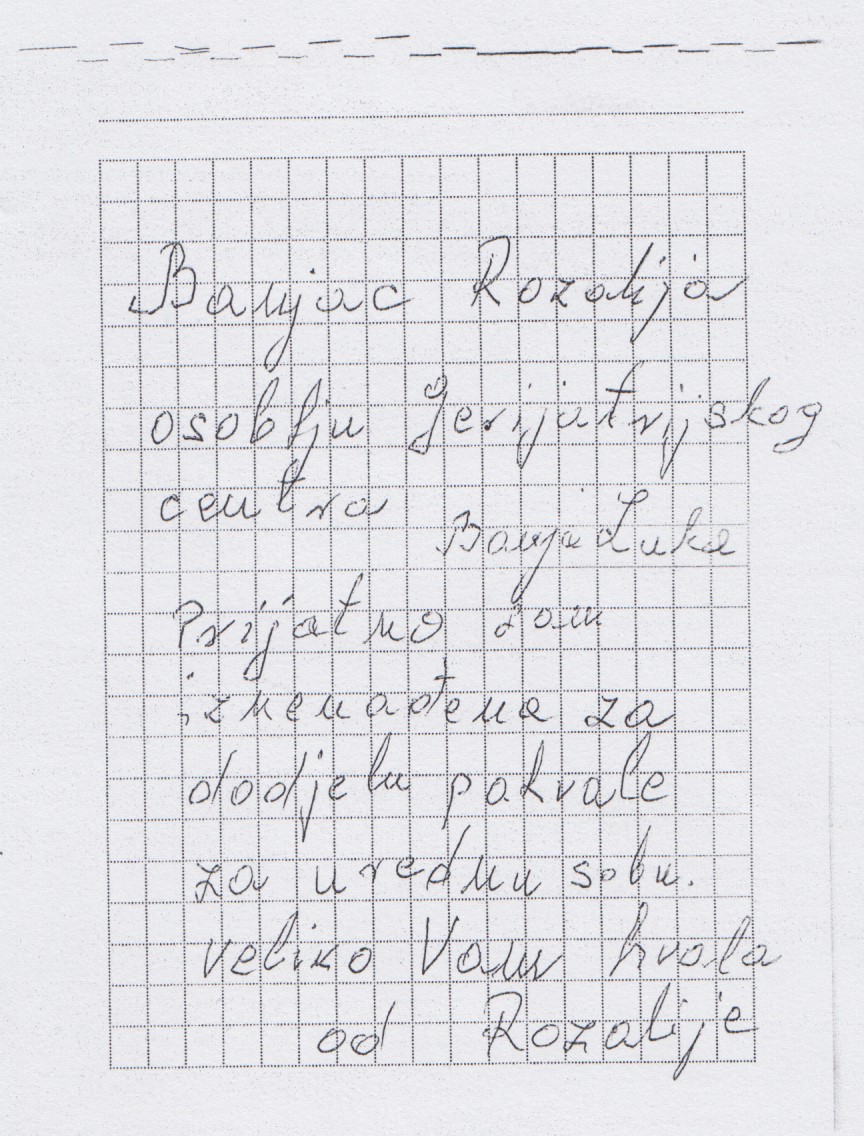 Banjac Rozalija
osoblju Gerijatrijskog
centra
Banja Luka
Prijatno sam
iznenađena za
dodjelu pohvale
za urednu sobu.
veliko Vam hvala
od Rozalije